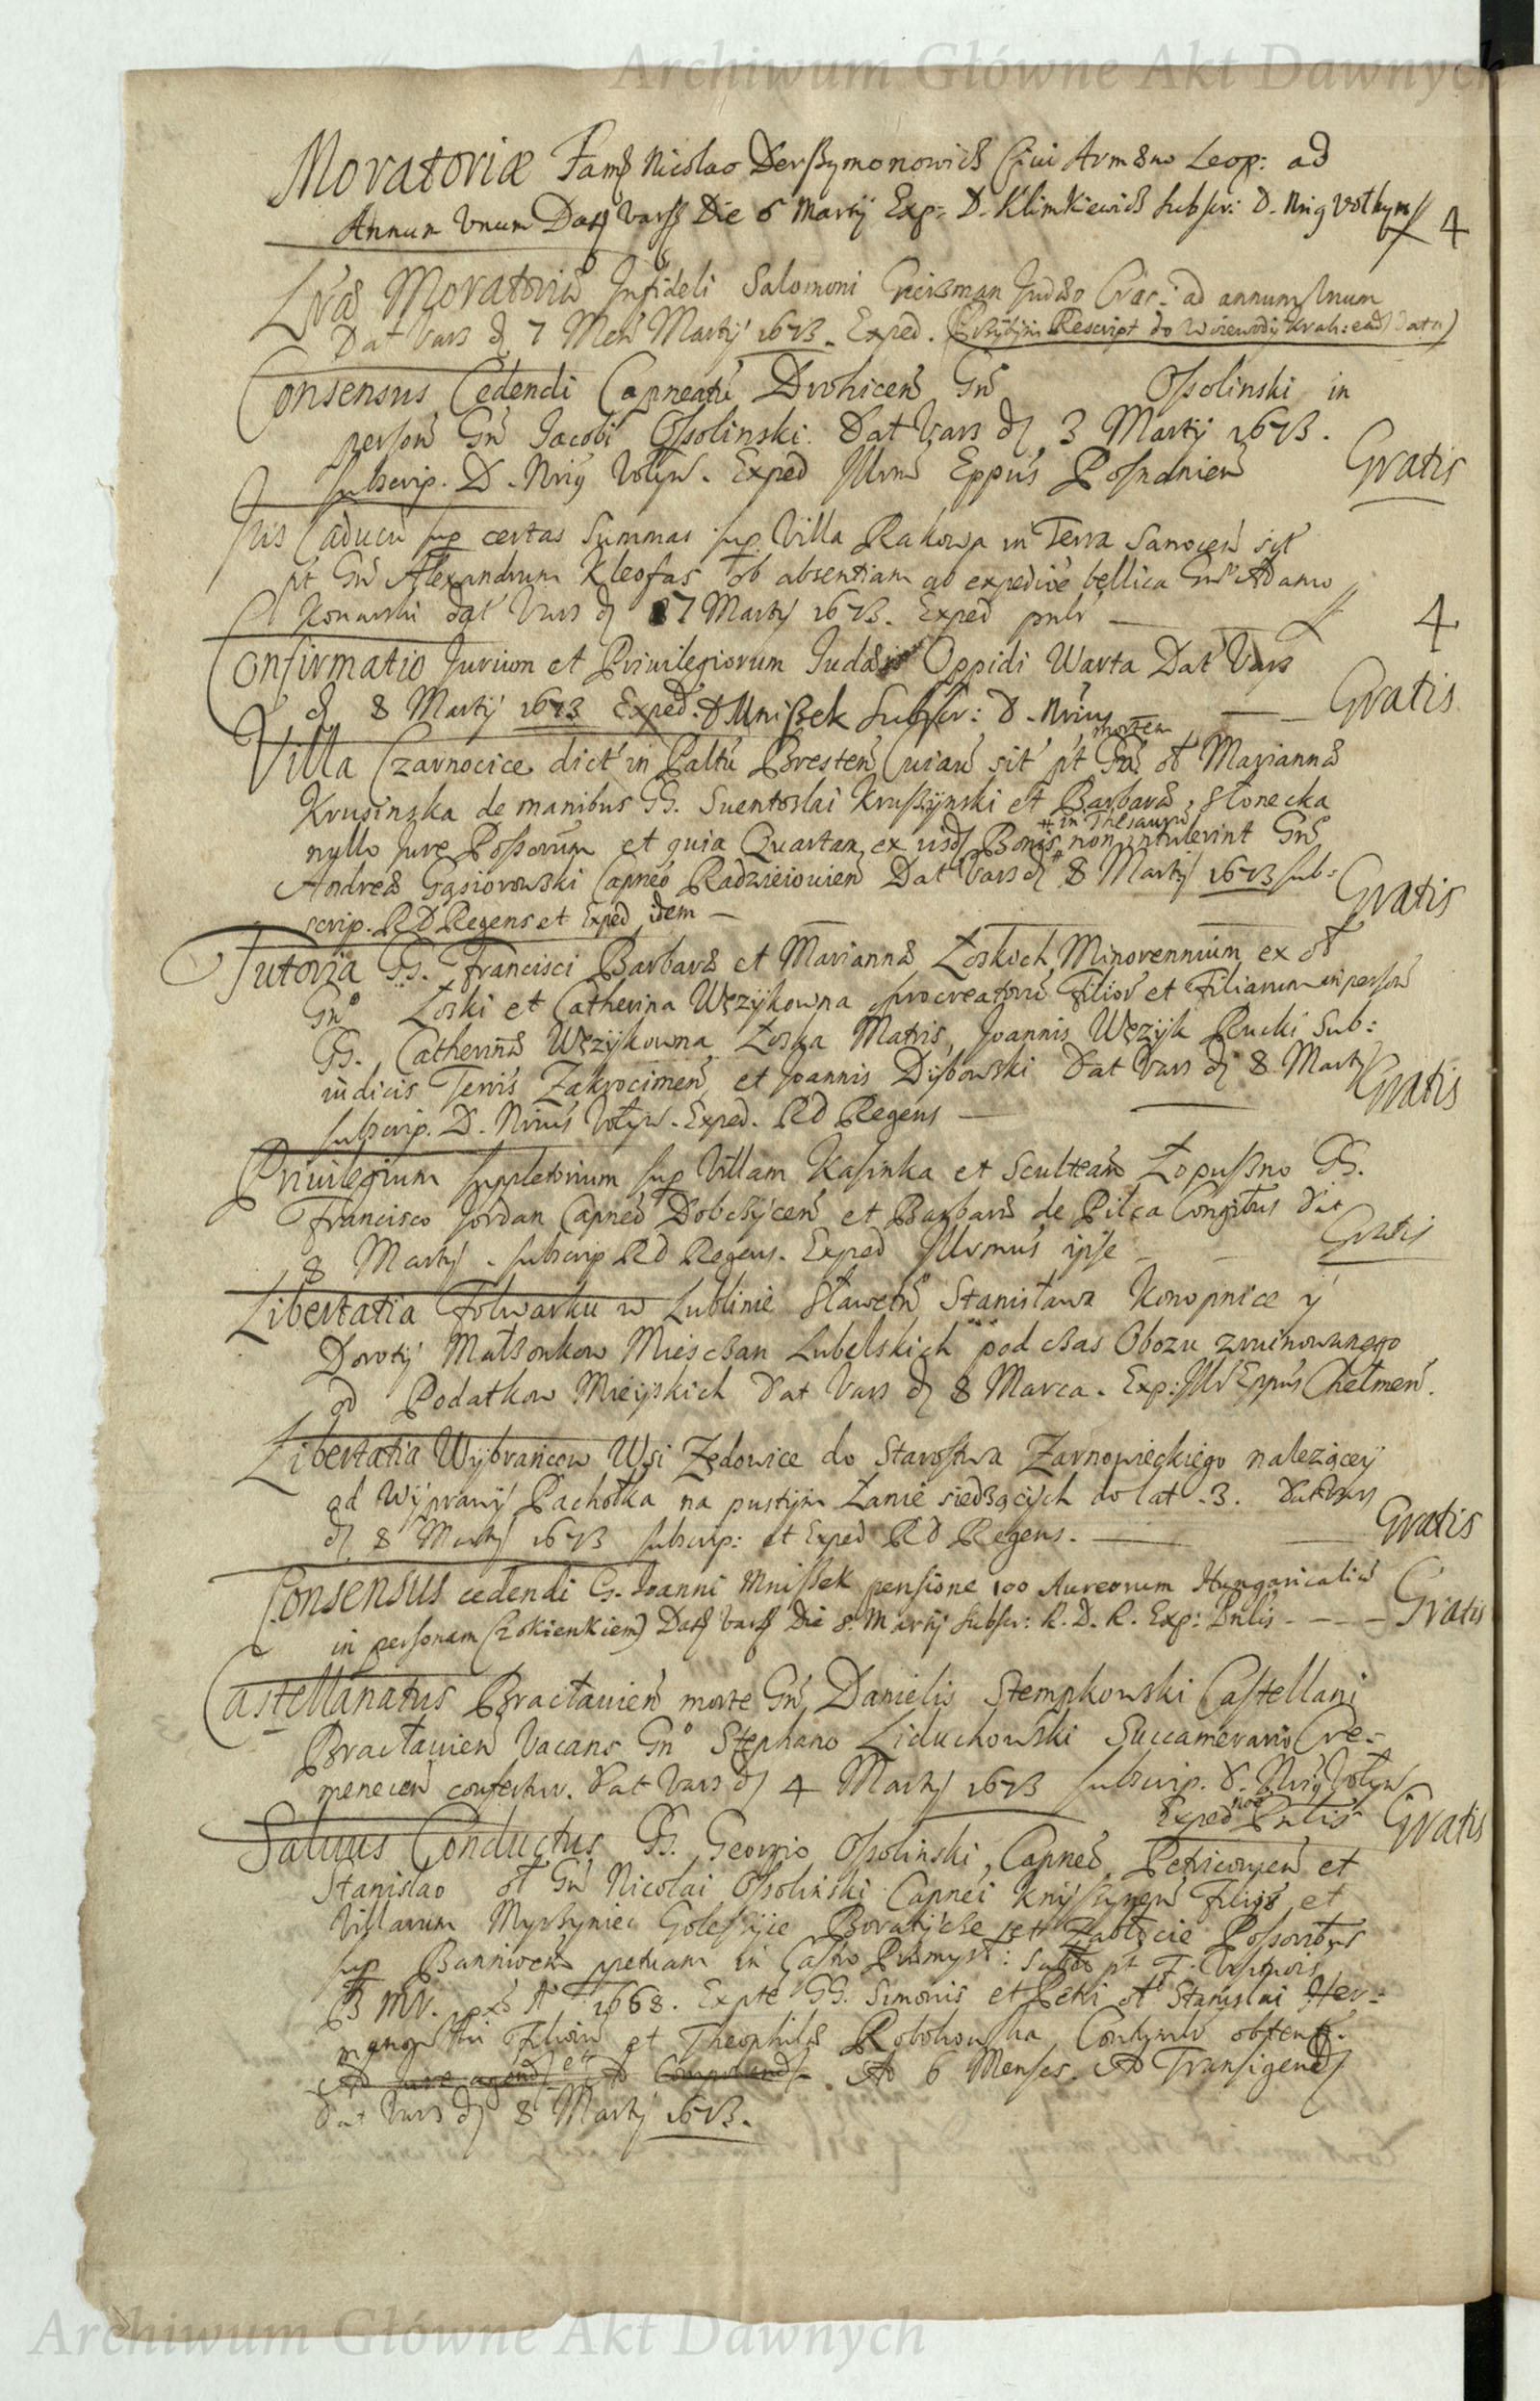 Archiwum Główne Akt Dawnych
Moratoriæ Fam Nicolao Derszymonowicz Civi Armæno Leop: ad
Annum Vnum Dat Vars Die 6 Martij Exp: D. Klimkiewicz subscr: D. Nrig Vothyn 4
Lræ Moratoriæ Infideli Salomoni Judæo Crac: ad annum unum
Dat Vars d 7 Mens Martij 1673. Exped. (Przytym Rescript do Woiewody Krak: ead datu)
Consensus Cedendi Capneatu Drohicen Gn Ossolinski in
person Gn Jacobi Ossolinski. Dat Vars d 3 Martij 1673.
subscrip. D. Nrig Volyn. Exped Illrm Eppus Posnanien Gratis
Juris Caduci sup certas Summas sup Villa Rakowa in Terra Sanocen sit
pt Gn Alexandrum Kleofas ob absentiam ab expedioe bellica Gn Adamo
Konarski dat Vars d 7 Martij 1673. Exped pnlr 4
Confirmatio Jurium et Priuilegiorum Judæis Oppidi Warta Dat Vars
d 8 Martij 1673 Exped: D Mniszek Subscr: D. Nrius Gratis
mortem
Villa Czarnocice dict in Paltu Bresten Cuiau sit pt Gn ol Mariannæ
Krusinska de manibus GG. Suentoslai Kruszynski et Barbaræ Słonecka
# in Thesauru
nullo Jure Possorum et quia Quartam ex iisd Bonis # non intulerint Gn
Andreæ Gąsiorowski Capneo Radzieiouien Dat Vars d 8 Martij 1673 sub-
scrip. RD Regens et Exped idem Gratis
Tutoria GG. Francisci Barbaræ et Mariannæ Łoskich Minorennium ex ol
Gno Łoski et Catherina Wężykowna procreatoru Filior et Filiarum in person
GG. Catherinæ Wężykowna Łoska Matris, Joannis Wężyk Rucki Sub:
iudicis Terris Zakrocimen et Joannis Dybowski Dat Vars d 8 Martij
subscrip. D. Nrius Volyn. Exped. RD Regens Gratis
Priuilegium suppletorium sup Villam Kasinka et Scultetiam Łopuszno GG.
Francisco Jordan Capneo Dobczycen et Barbaræ de Pilca Coniugibus Dat
8 Martij. subscrip RD Regens. Exped Illrmus ipse Gratis
Libertatia Folwarku w Lublinie Sławetn Stanisława Konopnice y
Doroty Małzonkow Miesczan Lubelskich pod czas Obozu zruinowanego
od Podatkow Mieyskich Dat Vars d 8 Marca. Exp: Illr Eppus Chełmen.
Libertatia Wybrancow Wsi Zędowice do Starostwa Żarnowieckiego należącey
od Wyprawy Pachołka na pustym Łanie siedzących do lat 3. Dat Vars
d 8 Martij 1673 subscrip: et Exped RD Regens. Gratis
Consensus cedendi G. Joanni Mniszek pensione 100 Aureorum Hungaricaliu
in personam (Zokienkiem) Dat Vars Die 8. Martij subscr: R. D. R. Exp: Pnlis Gratis
Castellanatus Bracłauien morte Gn Danielis Stempkowski Castellani
Bracłauien Vacans Gno Stephano Liduchowski Succamerario Cre-
menecen confertur. Dat Vars d 4 Martij 1673 subscrip. D. Nrig Volyn
Exped Pnlis Gratis
Saluus Conductus GG. Georgio Ossolinski, Capneo Petricouien et
Stanislao ol Gn Nicolai Ossolinski Capnei Knyszynen Filijs et
Villarum Myrszyniec Goleszyce Boratycze et Zabłocie Possoribus
sup Bannioem pretiam in Castro Præmysl:
1668. Expte GG. Simonis et Petri ol Stanislai Her-
Filiorum et Theophilæ Robohowska obtent.
Ad 6 Menses. Ad Transigend
Dat Vars d 8 Martij 1673.
Archiwum Główne Akt Dawnych